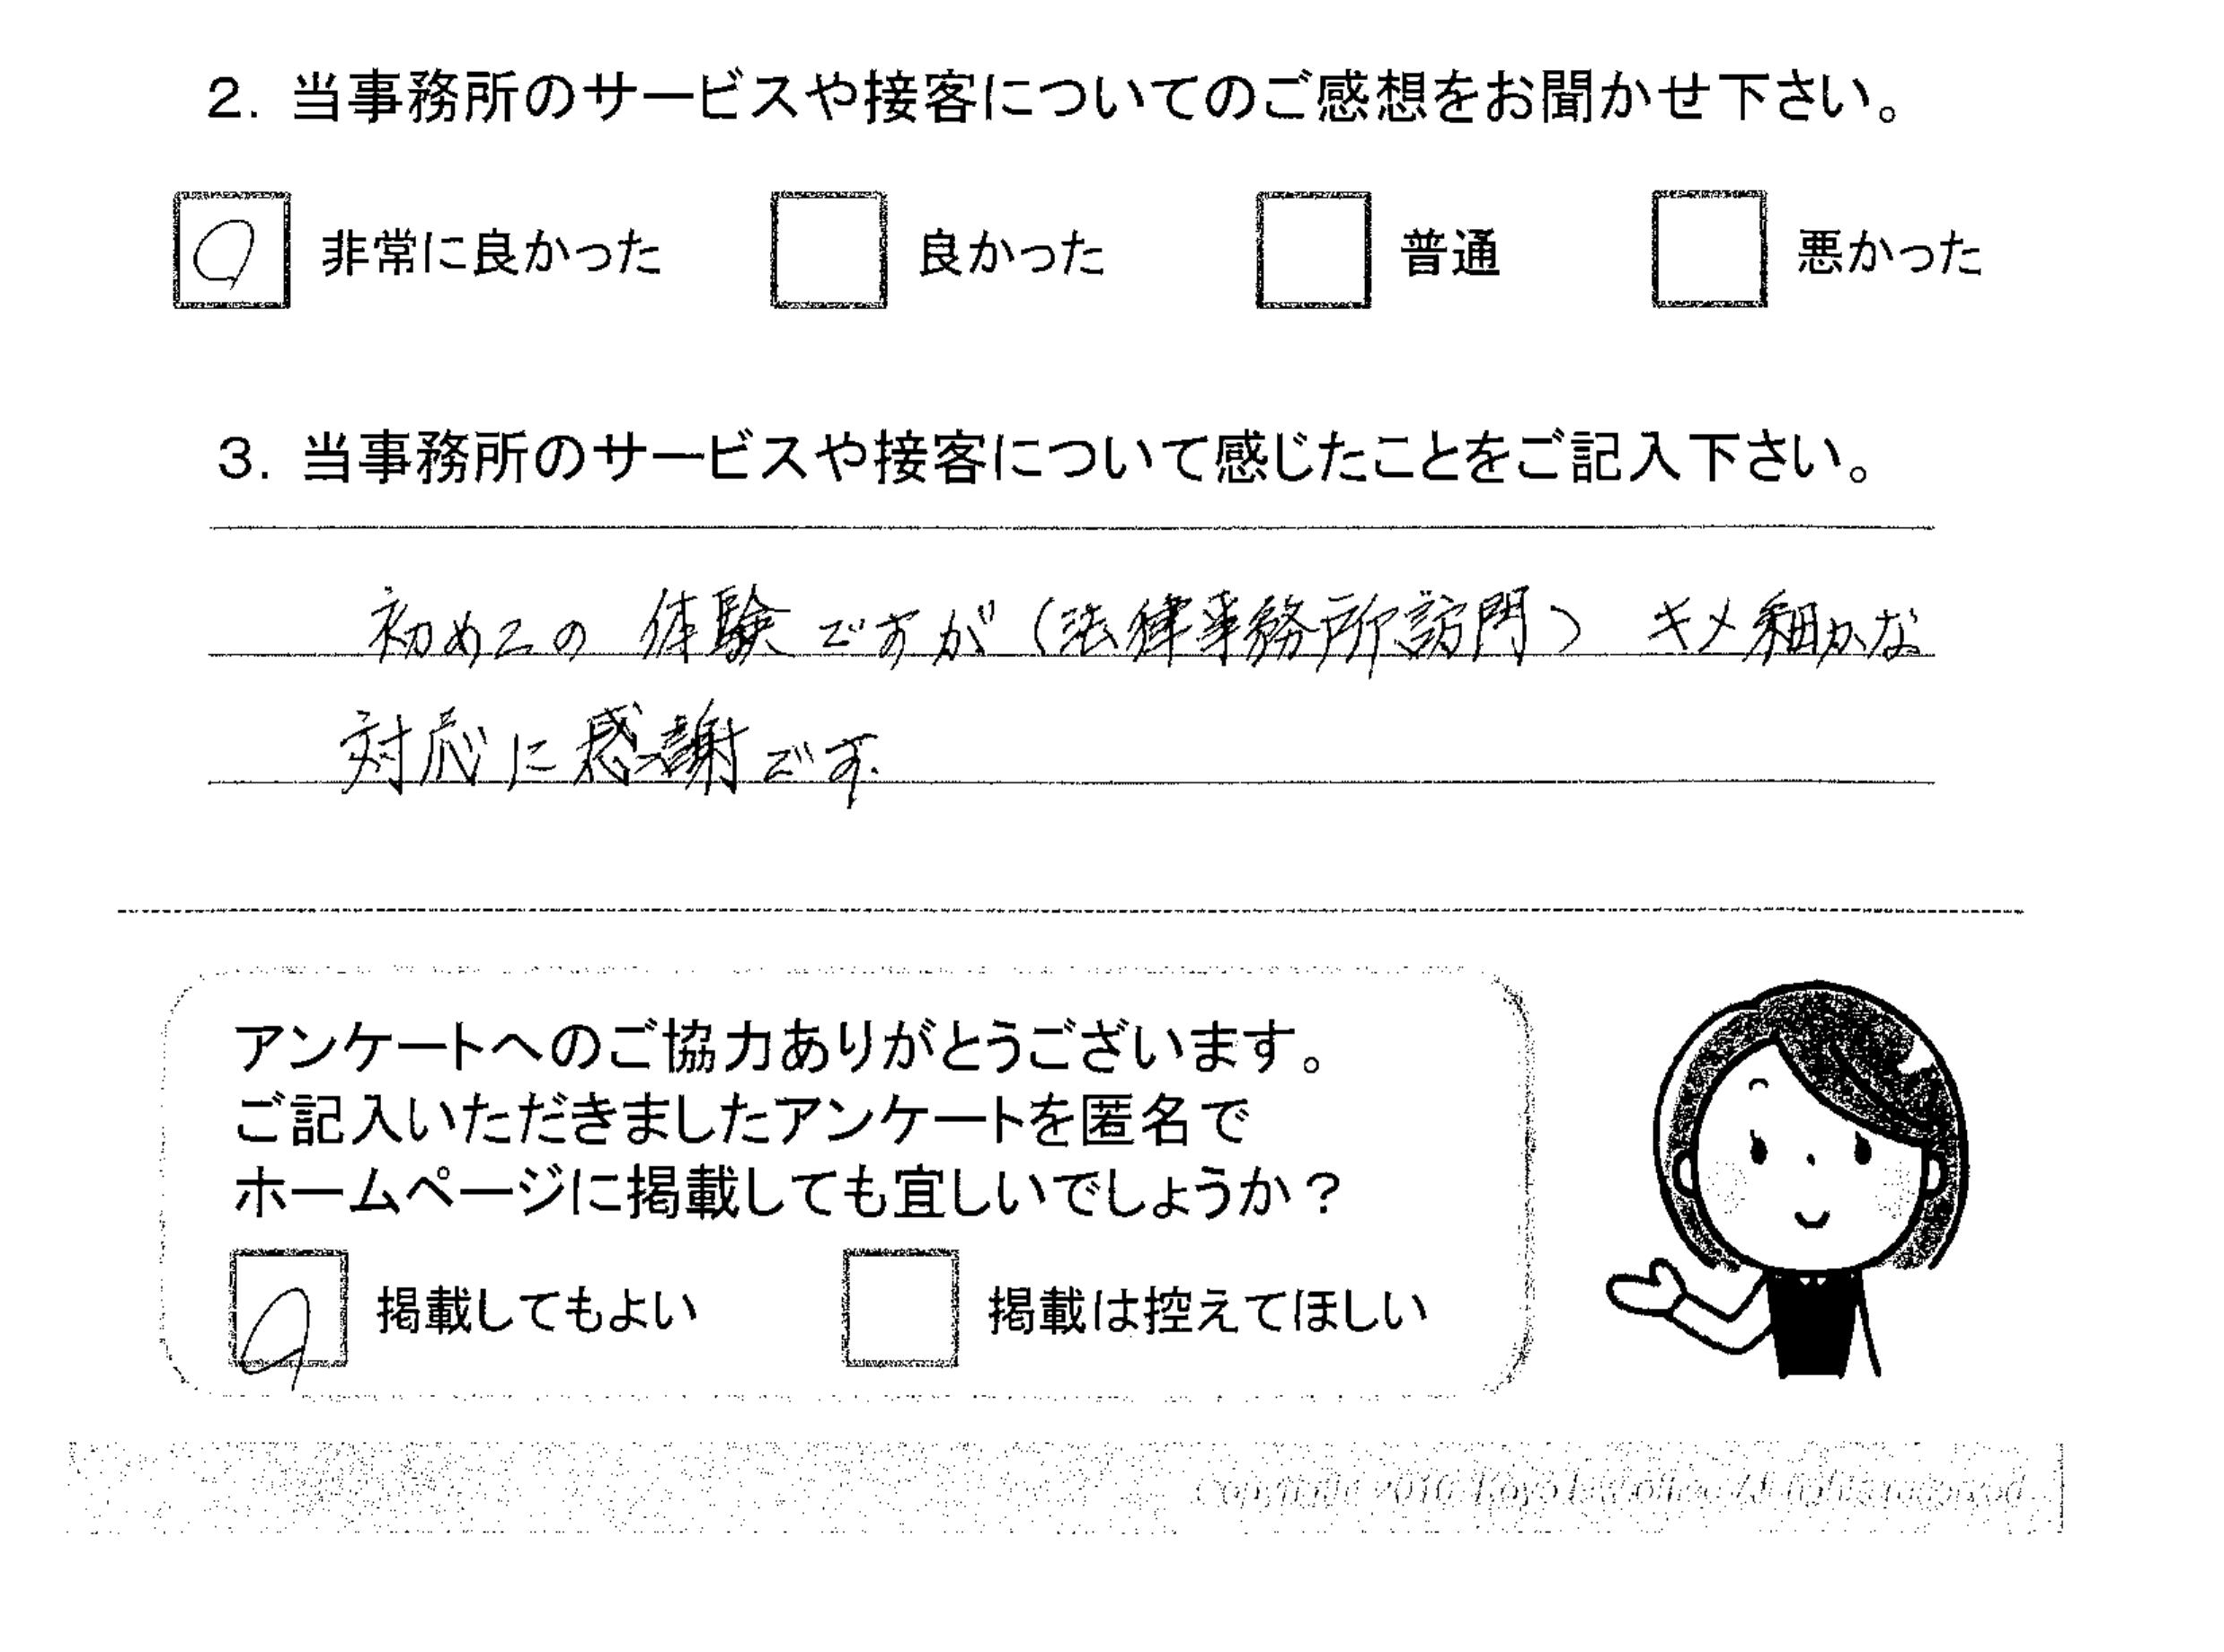 2. 当事務所のサービスや接客についてのご感想をお聞かせ下さい。
非常に良かった 良かった 普通 悪かった
3. 当事務所のサービスや接客について感じたことをご記入下さい。
初めての 体験ですが(法律事務所訪問) キメ細かな
対応に感謝です.
アンケートへのご協力ありがとうございます。
ご記入いただきましたアンケートを匿名で
ホームページに掲載しても宜しいでしょうか？
掲載してもよい 掲載は控えてほしい